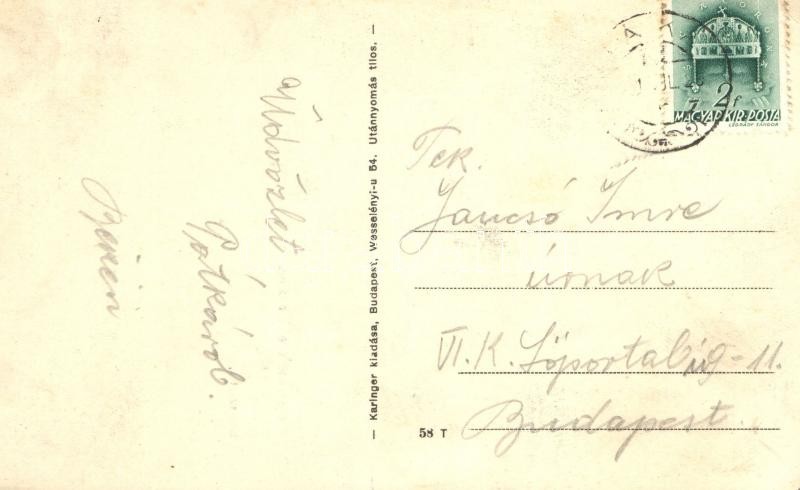 Üdvözlet
Gölkáról.
Karinger kiadása, Budapest, Wesselényi-u 54. Utánnyomás tilos.
58 T
2f
MAGYAR KIR. POSTA
LÉGRÁDY SÁNDOR
Tek.
Jancsó Imre
úrnak
VI. K. Lőportal ug-11.
Budapest